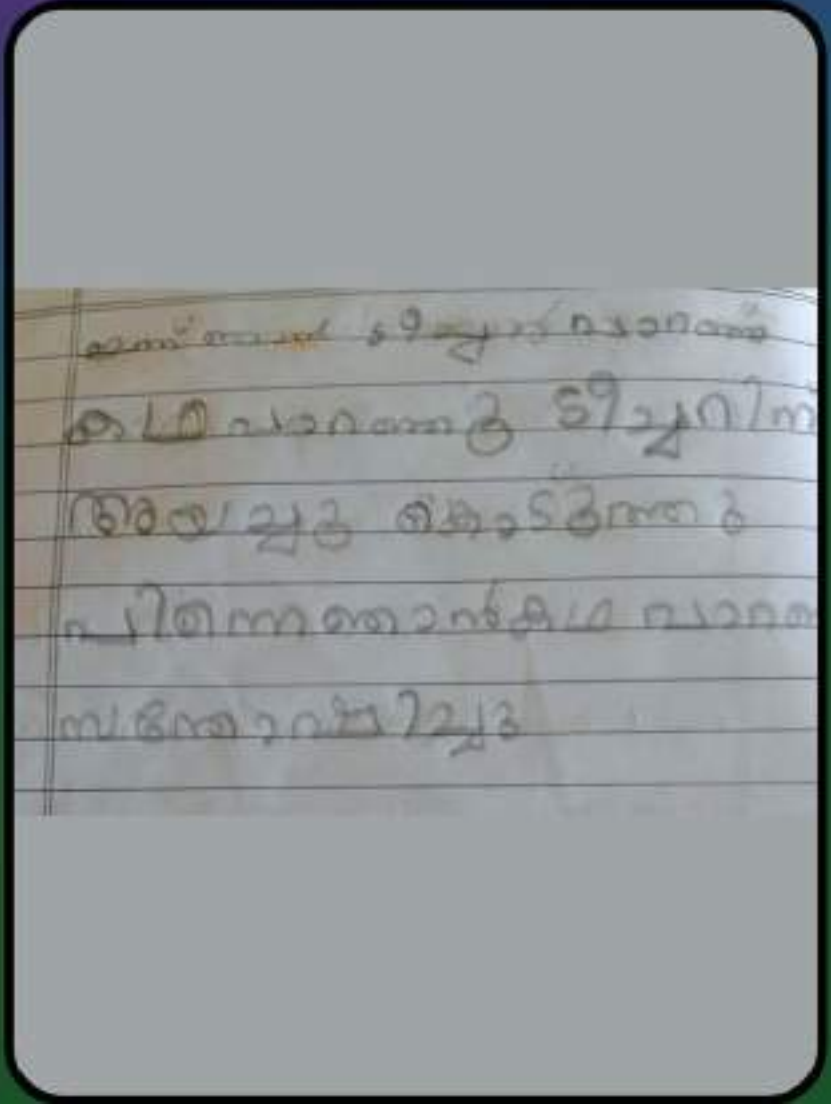 ഇന്ന് ഞാൻ ടീച്ചർ പറഞ്ഞ
കഥ പറഞ്ഞു ടീച്ചറിന്
അയച്ചു കൊടുത്തു
പിന്നെ ഞാൻ കഥ
സന്തോഷിച്ചു